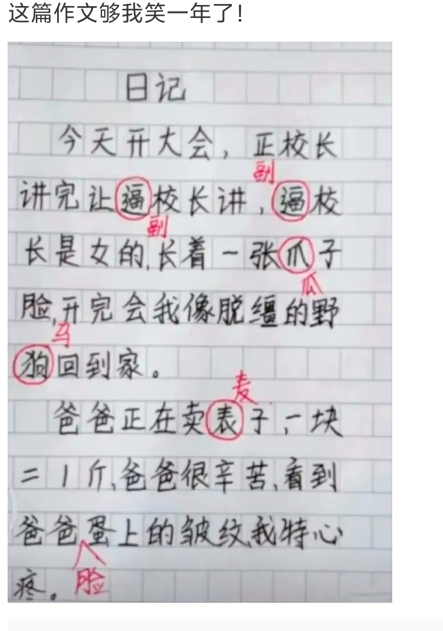 这篇作文够我笑一年了!
日记
今天开大会，正校长
副
讲完让逼校长讲，逼校
副
长是女的,长着一张爪子
瓜
脸,开完会我像脱缰的野
马
狗回到家。
麦
爸爸正在卖表子,一块
二1斤,爸爸很辛苦,看到
爸爸蛋上的皱纹,我特心
疼。脸